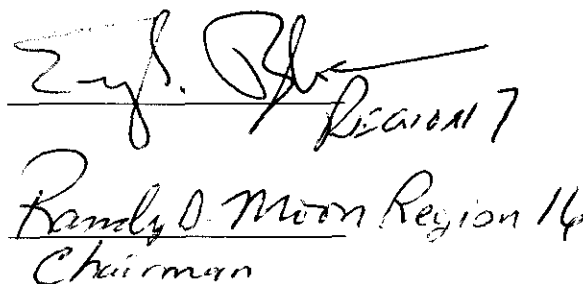 Region 7
Randy D. Moon Region 16
Chairman